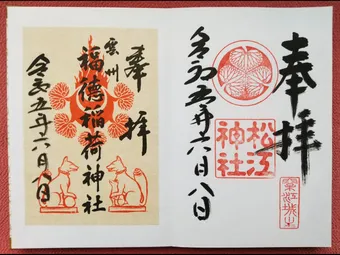 奉拝
松江神社
令和五年六月八日
奉拝
雲州
福徳稲荷神社
令和五年六月八日